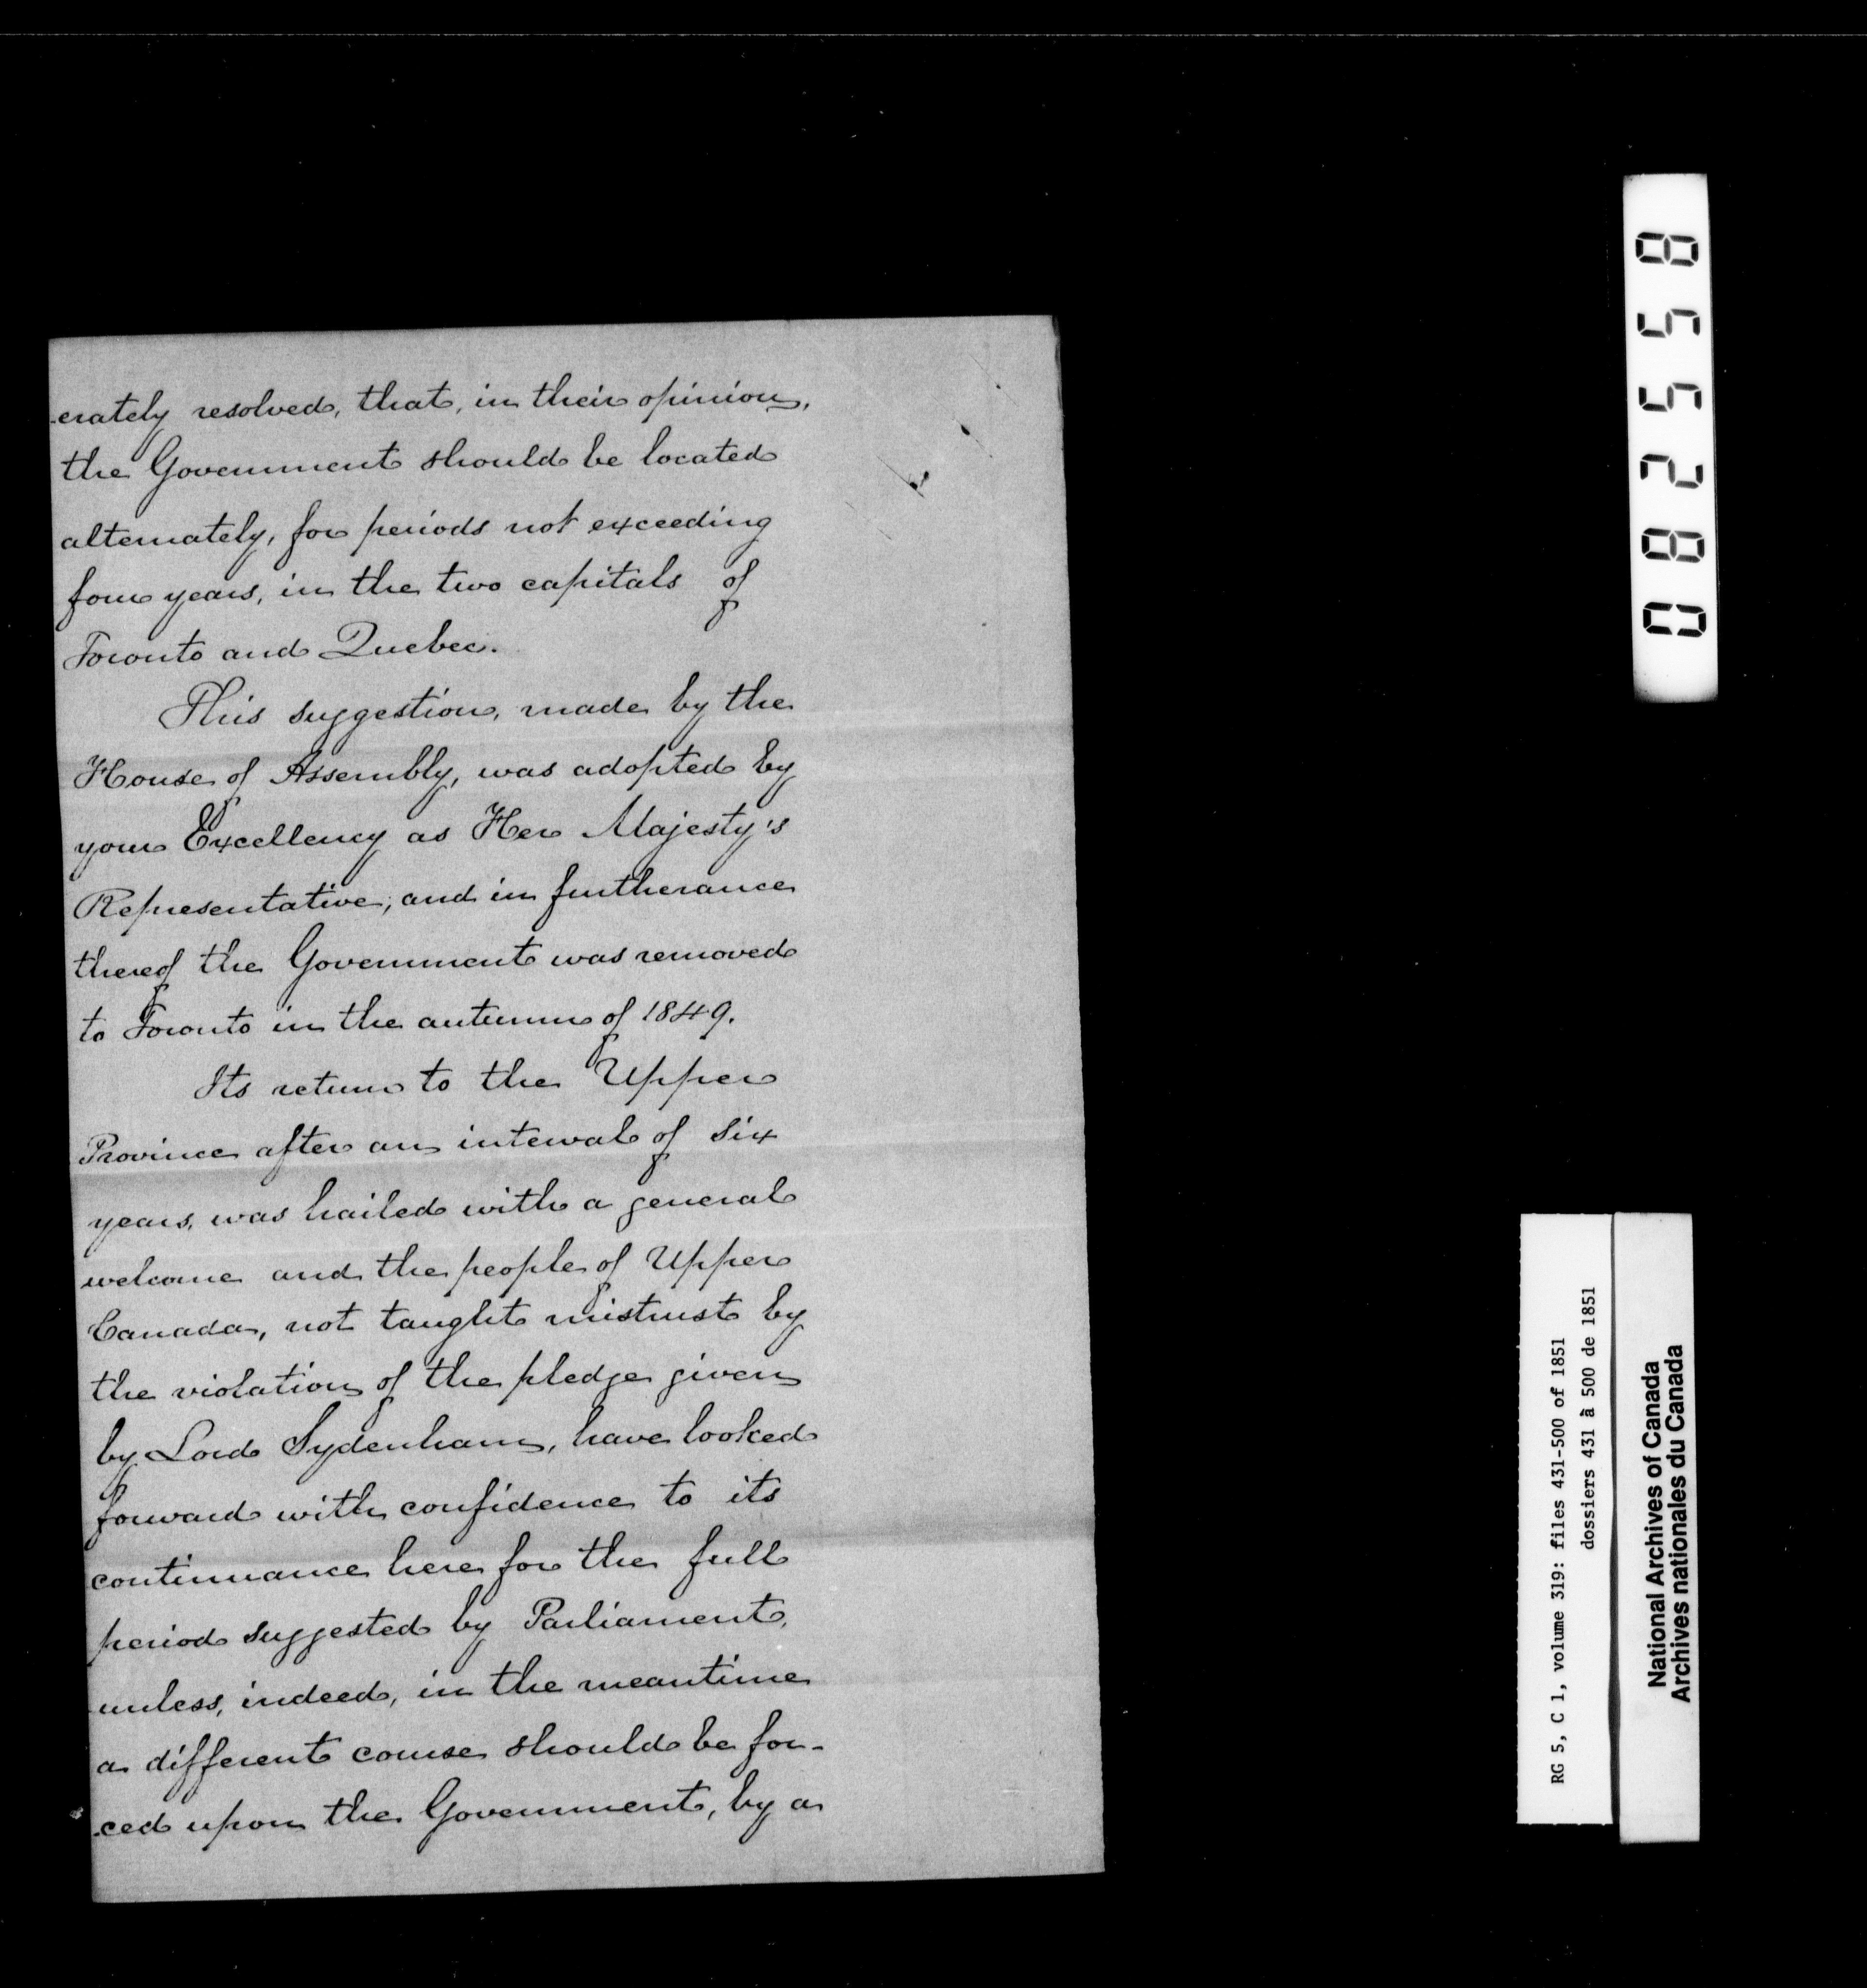 -erately resolved, that, in their opinion,
the Government should be located
alternately, for periods not exceeding
four years, in the two capitals of
Toronto and Quebec.
This suggestion, made by the
House of Assembly, was adopted by
your Excellency as Her Majesty's
Representative; and in furtherance
thereof the Government was removed
to Toronto in the autumn of 1849.
Its return to the Upper
Province after an interval of six
years, was hailed with a general
welcome and the people of Upper
Canada, not taught mistrust by
the violation of the pledge given
by Lord Sydenham, have looked
forward with confidence to its
continuance here for the full
period suggested by Parliament,
unless, indeed, in the meantime
a different course should be for-
-ced upon the Government, by a
082558
RG 5, C 1, volume 319: files 431-500 of 1851
dossiers 431 à 500 de 1851
National Archives of Canada
Archives nationales du Canada